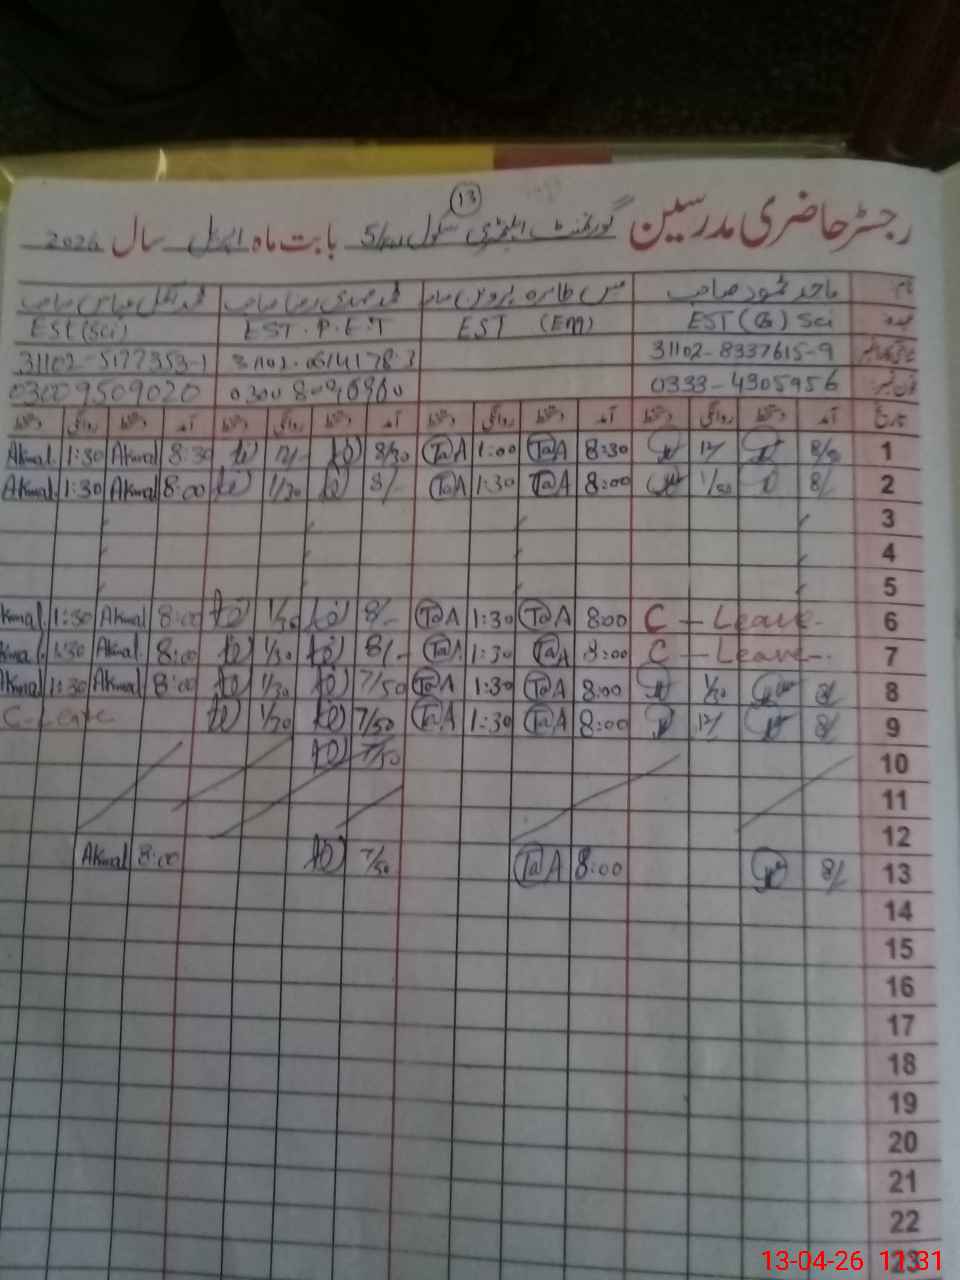 13
رجسٹر حاضری مدرسین گورنمنٹ ایلیمنٹری سکول بابت ماہ اپریل سال 2026
نام ماجد محمود صاحب مس طاہرہ پروین صاحبہ محمد مہدی رضا صاحب محمد اکمل عباس صاحب
عہدہ EST (G) Sci EST (Eng) EST. P.E.T EST (Sci)
31102-8337615-9 31102-5177353-1
فون نمبر 0333-4305956 03009509020
تاریخ آمد دستخط روانگی دستخط آمد دستخط روانگی دستخط آمد دستخط روانگی دستخط آمد دستخط روانگی دستخط
1 12/ 8:30 TaA 1:00 TaA 8/30 12/- 8:30 Akmal 1:30 Akmal
2 8/ 1/30 8:00 TaA 1:30 TaA 8/- 1/30 8:00 Akmal 1:30 Akmal
3
4
5
6 C - Leave 8:00 TaA 1:30 TaA 8/- 1/30 8:00 Akmal 1:30 Akmal
7 C - Leave 8:00 TaA 1:30 TaA 8/- 1/30 8:00 Akmal 1:30
8 8/ 1/30 8:00 TaA 1:30 TaA 7/50 1/30 8:00 Akmal 1:30
9 8/ 12/ 8:00 TaA 1:30 TaA 7/50 1/30 C-Leave
10 7/50
11
12
13 8/ 8:00 TaA 7/50 8:00 Akmal
14
15
16
17
18
19
20
21
22
23
13-04-26 11:31